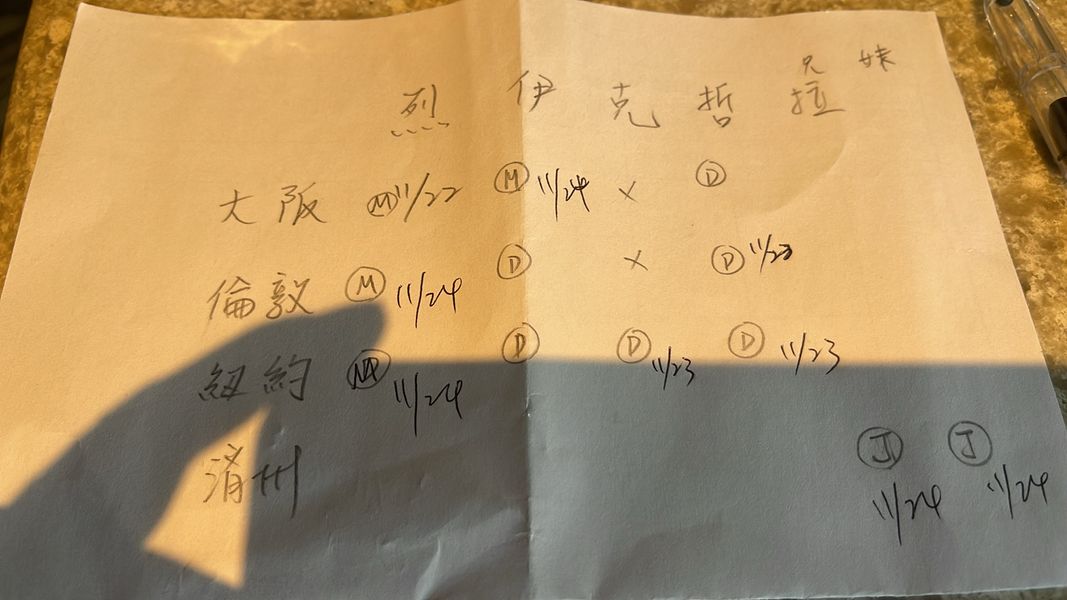 兄 妹
烈 伊 克 哲 拉
大阪 Ⓜ 11/22 Ⓜ 11/24 × Ⓓ
倫敦 Ⓜ 11/24 Ⓓ × Ⓓ 11/23
紐約 11/24 Ⓓ Ⓓ 11/23 Ⓓ 11/23
濟州 Ⓙ 11/24 Ⓙ 11/24